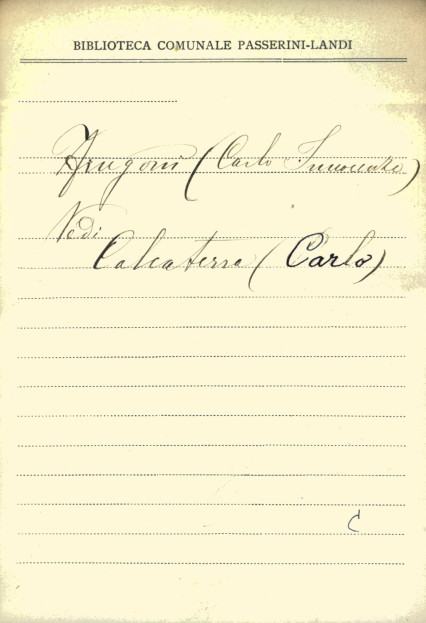 BIBLIOTECA COMUNALE PASSERINI-LANDI
Frugoni (Carlo Innocenzo)
Vedi
Calcaterra (Carlo)
C